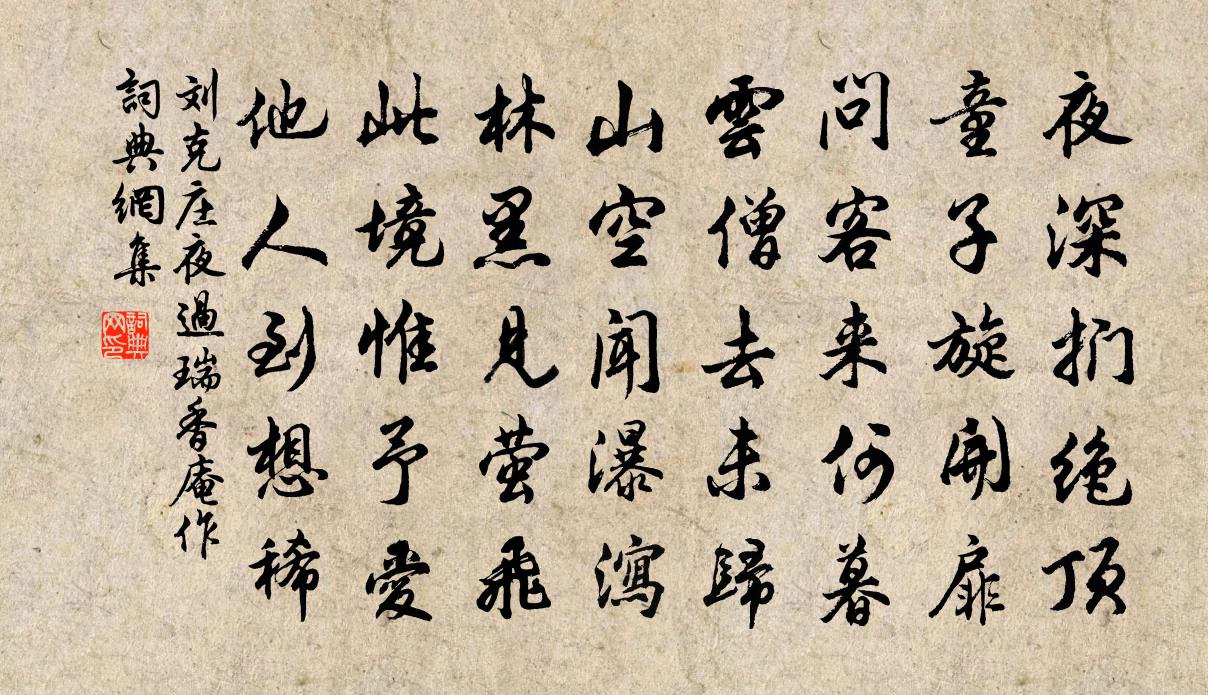 夜深扪绝顶
童子旋开扉
问客来何暮
雲僧去未歸
山空闻瀑瀉
林黑見萤飛
此境惟予愛
他人到想稀
刘克庄夜過瑞香庵作
詞典網集
詞典网印